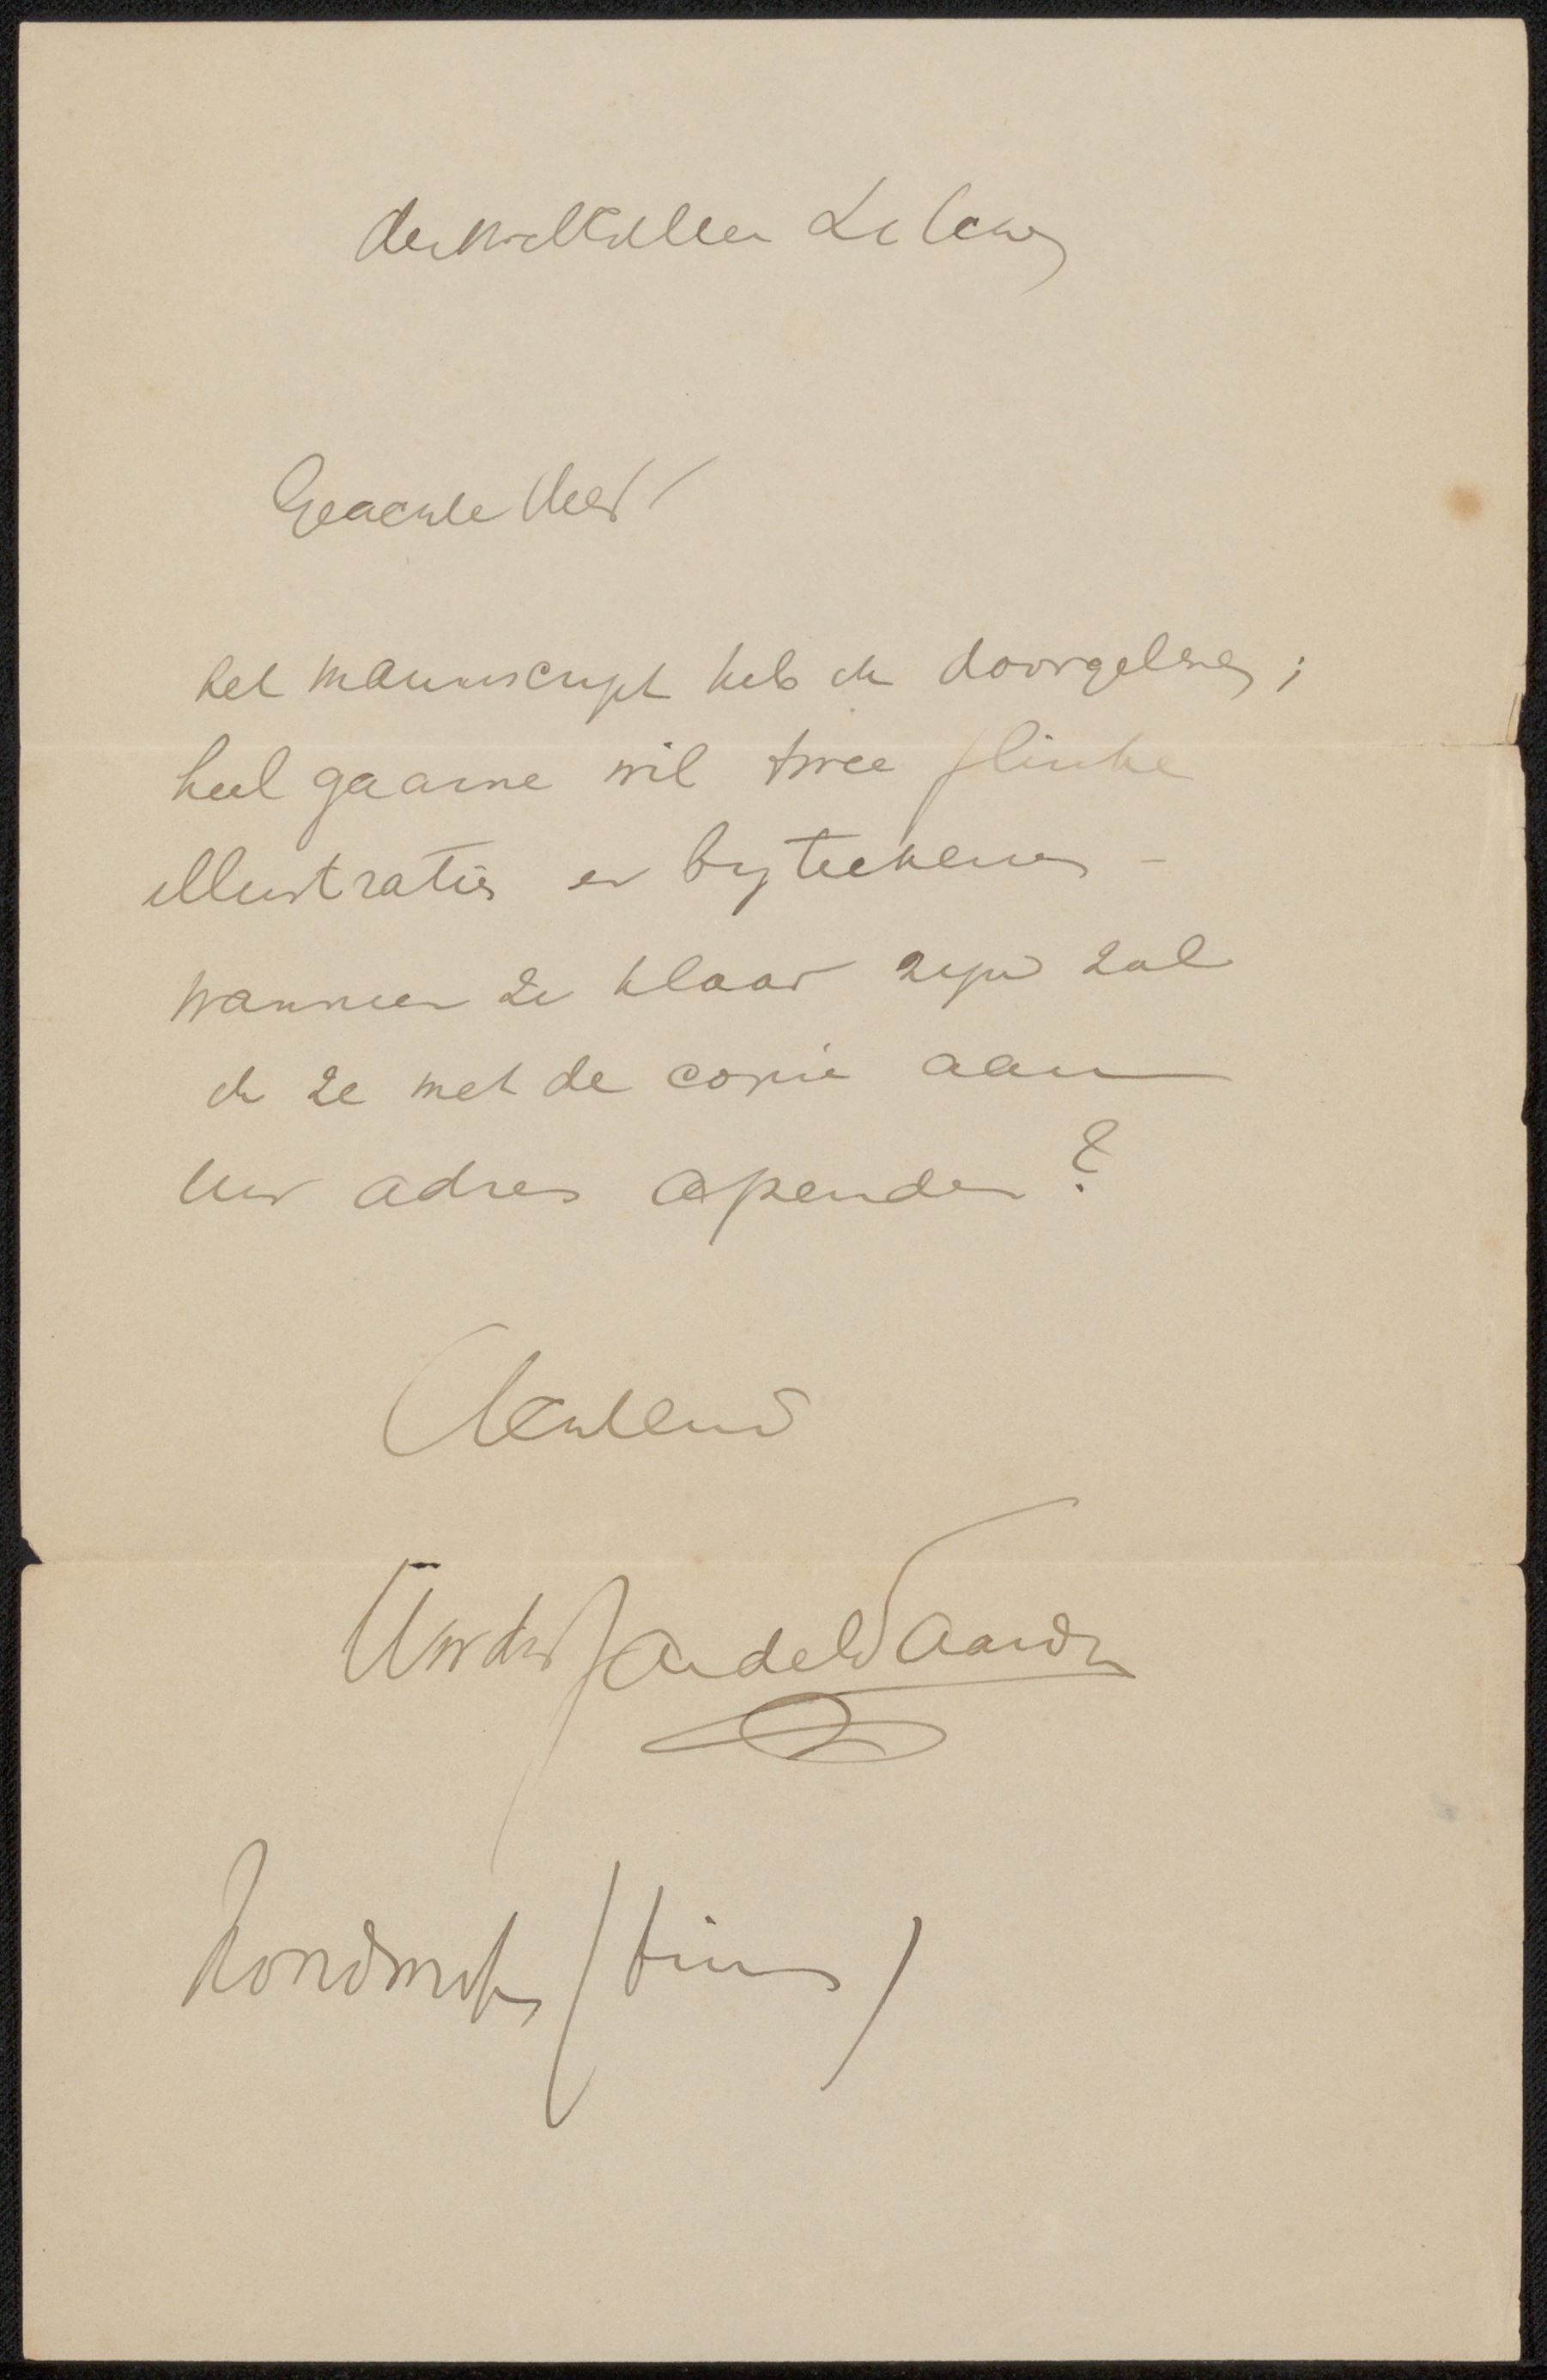 den WelEdelen
Geachte Heer
het manuscript heb ik doorgelezen;
heel gaarne wil twee flinke
illustraties er by teekenen -
wanneer ze klaar zyn zal
ik ze met de copie aan
Uw adres opzenden?
Achtend
Uw dw
Noordwijk / Binnen /